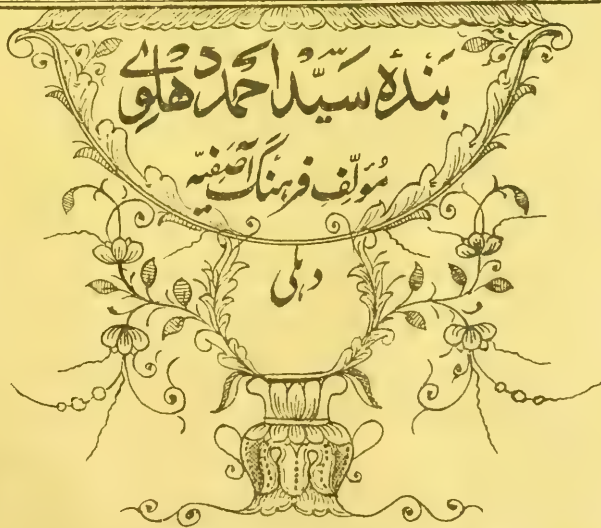 بندۂ سیّد احمد دھلوی
مُؤلِّف فرہنگ آصفیّہ
دہلی